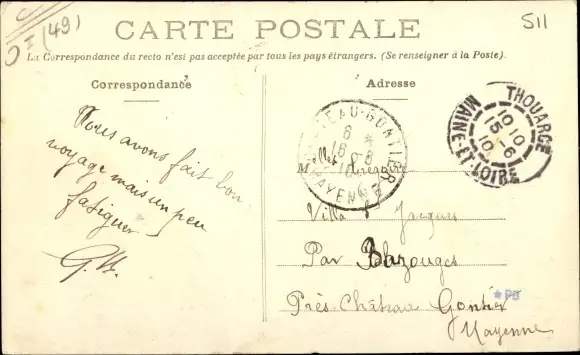 (49)
511
CARTE POSTALE
La Correspondance du recto n'est pas acceptée par tous les pays étrangers. (Se renseigner à la Poste).
Correspondance
Adresse
Nous avons fait bon
voyage mais un peu
fatigués
CHATEAU-GONTIER
6 *
16 - 6
10
MAYENNE
THOUARCÉ
10 10
15 - 6
10
MAINE-ET-LOIRE
M
Villa Jacques
Par Bazouges
Près Château Gontier
Mayenne